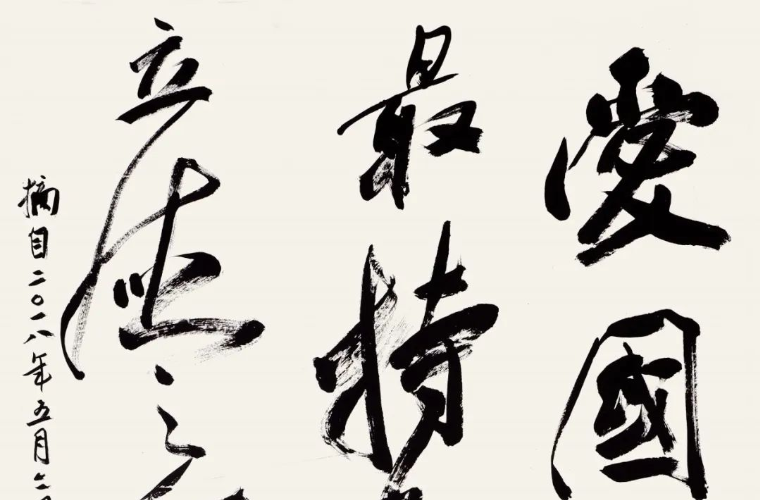 愛國
最持
立德之
摘自二〇一八年五月二日